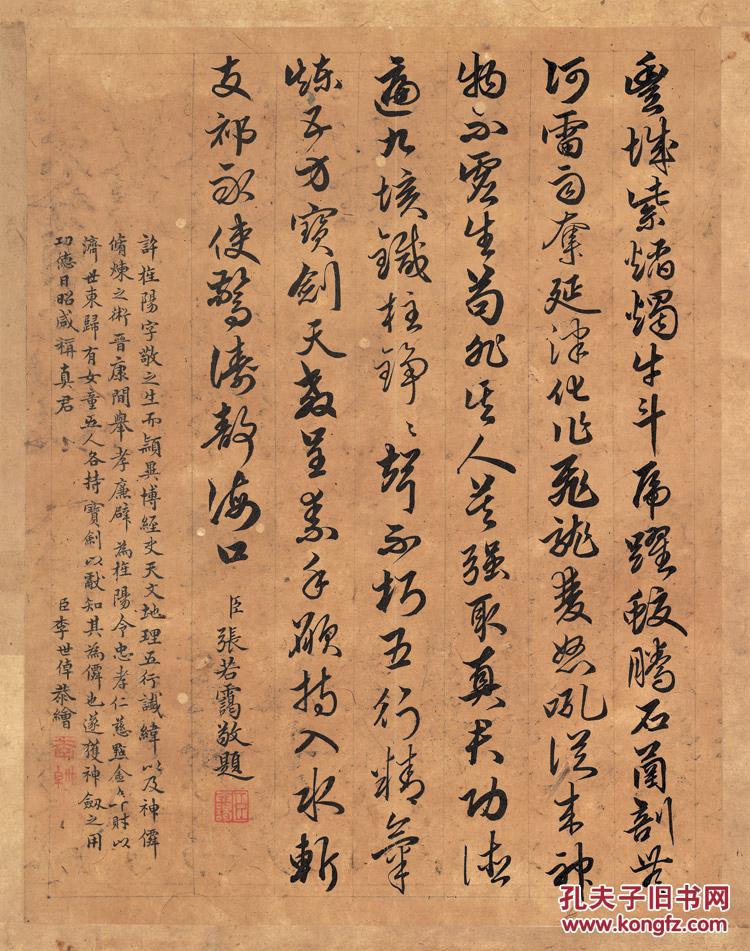 豐城紫燄燭牛斗虎躍蛟騰石函剖
河雷雨奪延津化作飛龍雙怒吼從來神
物不虛生苟非其人莫強取真君功德
遍九垓鐵柱錚々聲不朽五行精氣
煉五方寶劍天教呈素手願持入水斬
支祁永使驚濤靜海口
臣張若靄敬題
許旌陽字敬之生而穎異博經史天文地理五行讖緯以及神僊
脩煉之術晉康間舉孝廉辟為旌陽令忠孝仁慈點金財以
濟世東歸有女童五人各持寶劍以獻知其為僊也遂獲神劔之用
功德日昭咸稱真君
臣李世倬恭繪
孔夫子旧书网
www.kongfz.com